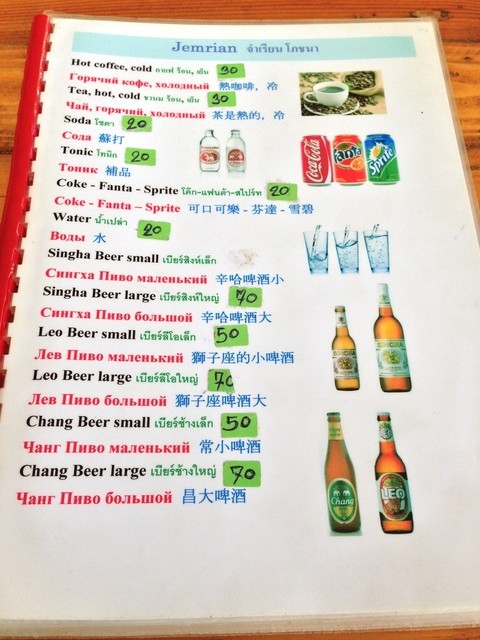 Jemrian จำเรียน โภชนา
Hot coffee, cold กาแฟ ร้อน, เย็น 30
Горячий кофе, холодный 熱咖啡，冷
Tea, hot, cold ชานม ร้อน, เย็น 30
Чай, горячий, холодный 茶是熱的，冷
Soda โซดา 20
Сода 蘇打
Tonic โทนิก 20
Тоник 補品
Coke - Fanta - Sprite โค๊ก-แฟนต้า-สไปร์ท 20
Coke - Fanta – Sprite 可口可樂 - 芬達 - 雪碧
Water น้ำเปล่า 20
Воды 水
Singha Beer small เบียร์สิงห์เล็ก
Сингха Пиво маленький 辛哈啤酒小
Singha Beer large เบียร์สิงห์ใหญ่ 70
Сингха Пиво большой 辛哈啤酒大
Leo Beer small เบียร์ลีโอเล็ก 50
Лев Пиво маленький 獅子座的小啤酒
Leo Beer large เบียร์ลีโอใหญ่ 70
Лев Пиво большой 獅子座啤酒大
Chang Beer small เบียร์ช้างเล็ก 50
Чанг Пиво маленький 常小啤酒
Chang Beer large เบียร์ช้างใหญ่ 70
Чанг Пиво большой 昌大啤酒
Coca-Cola
Fanta
Sprite
SINGHA
Chang
LEO